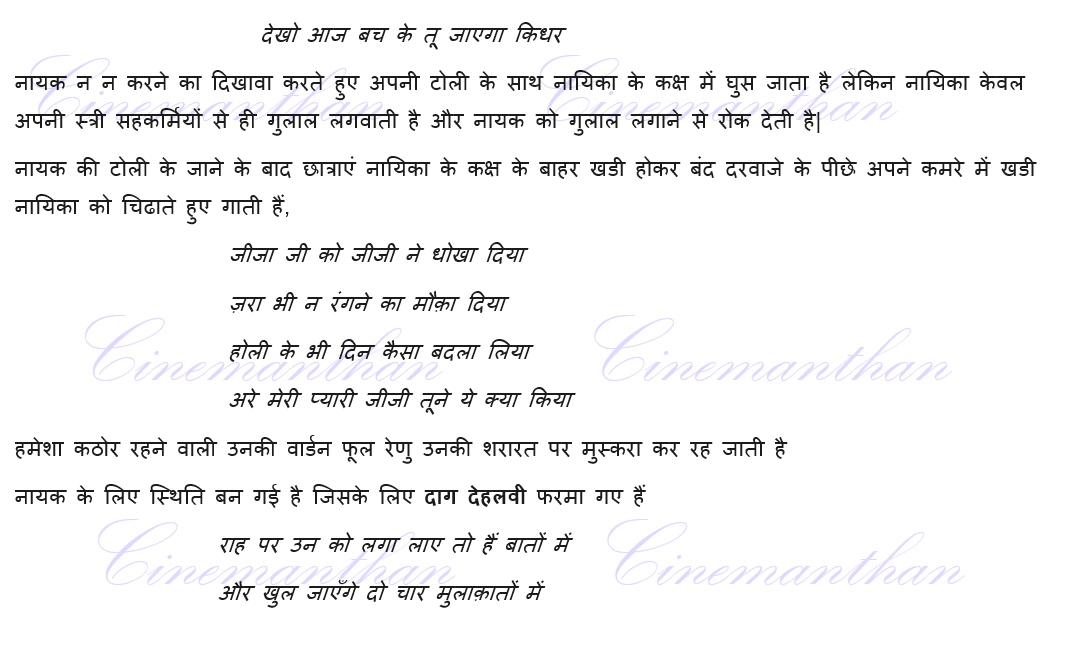 देखो आज बच के तू जाएगा किधर
नायक न न करने का दिखावा करते हुए अपनी टोली के साथ नायिका के कक्ष में घुस जाता है लेकिन नायिका केवल
अपनी स्त्री सहकर्मियों से ही गुलाल लगवाती है और नायक को गुलाल लगाने से रोक देती है|
नायक की टोली के जाने के बाद छात्राएं नायिका के कक्ष के बाहर खडी होकर बंद दरवाजे के पीछे अपने कमरे में खडी
नायिका को चिढाते हुए गाती हैं,
जीजा जी को जीजी ने धोखा दिया
ज़रा भी न रंगने का मौक़ा दिया
होली के भी दिन कैसा बदला लिया
अरे मेरी प्यारी जीजी तूने ये क्या किया
हमेशा कठोर रहने वाली उनकी वार्डन फूल रेणु उनकी शरारत पर मुस्करा कर रह जाती है
नायक के लिए स्थिति बन गई है जिसके लिए दाग देहलवी फरमा गए हैं
राह पर उन को लगा लाए तो हैं बातों में
और खुल जाएँगे दो चार मुलाक़ातों में
Cinemanthan Cinemanthan
Cinemanthan Cinemanthan
Cinemanthan Cinemanthan